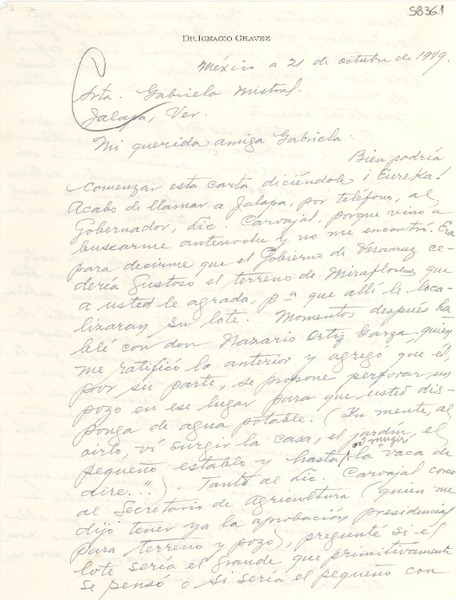 58361
DR. IGNACIO CHAVEZ
México a 21 de octubre de 1949.
Srta. Gabriela Mistral.
Jalapa, Ver.
Mi querida amiga Gabriela:
Bien podría
comenzar esta carta diciéndole ¡Eureka!
Acabo de llamar a Jalapa, por teléfono, al
Gobernador, Lic. Carvajal, porque vino a
buscarme antenoche y no me encontró. Era
para decirme que el Gobierno de Veracruz ce-
dería gustoso el terreno de Miraflores que
a usted le agrada, pª que allí le loca-
lizaran su lote. Momentos después ha-
blé con don Nazario Ortiz Garza, quien
me ratificó lo anterior y agregó que él,
por su parte, se propone perforar un
pozo en ese lugar para que usted dis-
ponga de agua potable. (In mente, al
oirlo, ví surgir la casa, el jardín, el
pequeño establo y hasta oí mugir la vaca de
dire..."). Tanto al Lic. Carvajal como
al Secretario de Agricultura (quien me
dijo tener ya la aprobación presidencial
para terreno y pozo), pregunté si el
lote sería el grande que primitivamente
se pensó o si sería el pequeño con